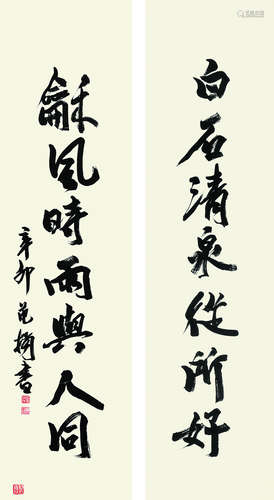 白石清泉從所好
龢風時雨與人同
辛卯 范 書